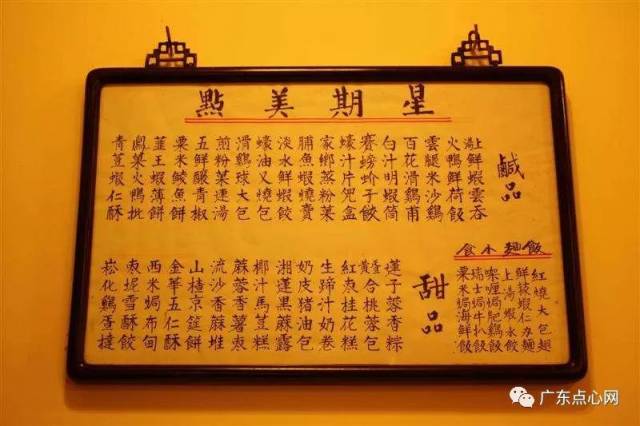 星期美點
鹹品
上湯鮮蝦雲吞
火鴨鮮荷飯
雲腿米沙鷄
百花滑鷄甫
白汁明蝦筒
賽螃蚧子餃
蠔汁片盒
家鄉蒸粉菓
脯魚蝦燒賣
淡水鮮蝦餃
蠔油叉燒包
滑鷄球大包
煎粉菓連湯
五鮮釀青椒
粟米鯪魚餅
韮王蝦薄餅
鳳菓火鴨批
青荳蝦仁酥
飯麵小食
紅燒大包翅
鮮蝦仁麵
上湯蝦水餃
咖喱焗肥鷄飯
瑞士焗牛扒飯
粟米焗海鮮飯
甜品
蓮子蓉香粽
合桃蓉包
紅棗桂花糕
生蹄汁奶卷
奶皮豬油包
湘蓮黑蔴露
椰汁馬荳糕
蔴蓉香薯棗
流沙香蔴堆
山楂京筵餅
金華五仁酥
西米焗布甸
棗坭雪酥餃
崧化鷄蛋撻
广东点心网